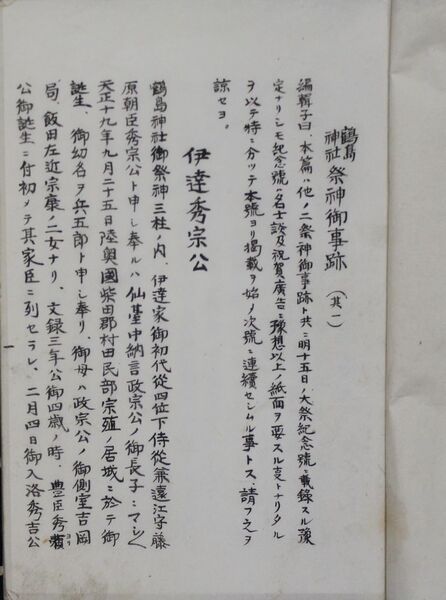 鶴島
神社 祭神御事跡（其一）
編輯子曰、本篇ハ他ノ二祭神御事跡ト共ニ明十五日ノ大祭紀念號ニ載錄スル豫
定ナリシモ紀念號ハ名士談及祝賀廣告ニ豫想以上ノ紙面ヲ要スル事トナリタル
ヲ以テ特ニ分ッテ本號ヨリ掲載ヲ始ノ次號ニ連續セシムル事トス、請フ之ヲ
諒セヨ。
伊達秀宗公
鶴島神社御祭神三柱ノ內、伊達家御初代從四位下侍從兼遠江守藤
原朝臣秀宗公ト申シ奉ルハ仙臺中納言政宗公ノ御長子ニマシく
天正十九年九月二十五日陸奧國柴田郡村田民部宗殖ノ居城ニ於テ御
誕生、御幼名ヲ兵五郎ト申シ奉リ、御母ハ政宗公ノ御側室吉岡
局、飯田左近宗康ノ二女ナリ、文録三年公御四歳ノ時、豊臣秀賴ヨリ
公御誕生ニ付初メテ其家臣ニ列セラレ、二月四日御入洛秀吉公